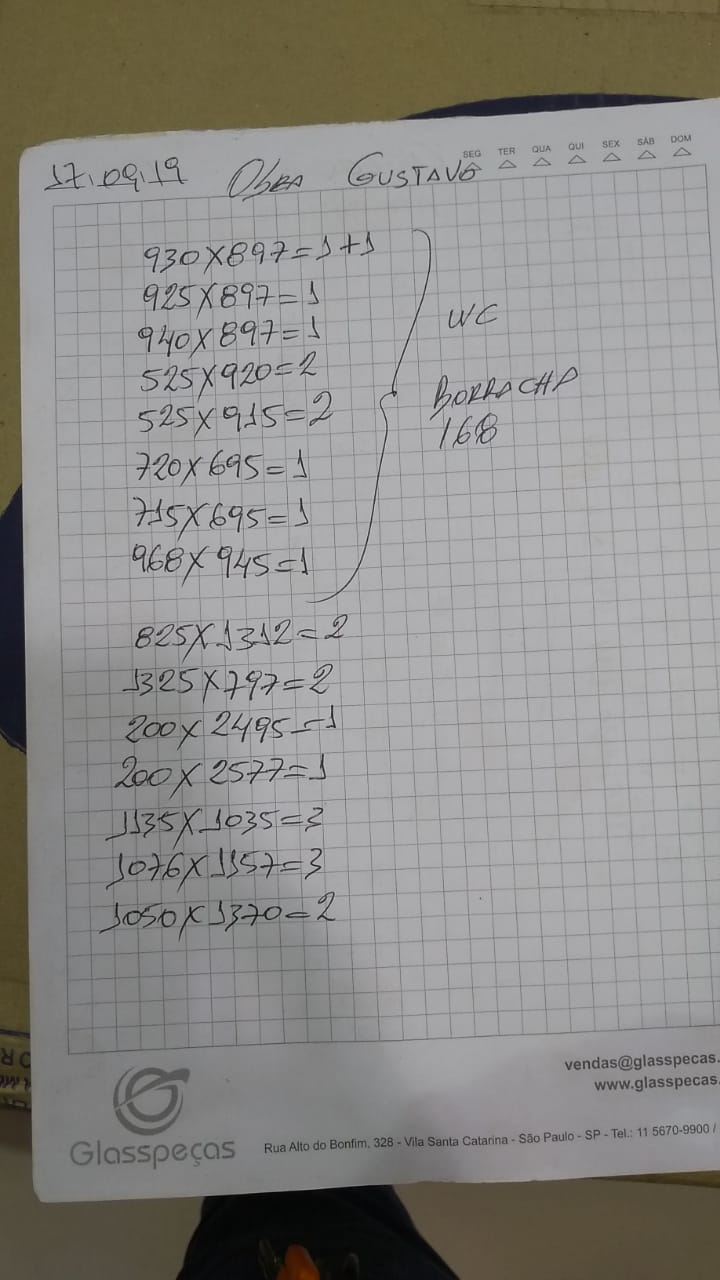 SEG TER QUA QUI SEX SÁB DOM
17.09.19 OBRA GUSTAVO
930X897=1+1
925X897=1
940X897=1
525X920=2
525X915=2
720X695=1
715X695=1
968X945=1
WC
BORRACHA
168
825X1312=2
1325X797=2
200X2495=1
200X2577=1
1135X1035=3
1076X1157=3
1050X1370=2
vendas@glasspecas.
www.glasspecas.
Glasspeças
Rua Alto do Bonfim, 328 - Vila Santa Catarina - São Paulo - SP - Tel.: 11 5670-9900 /